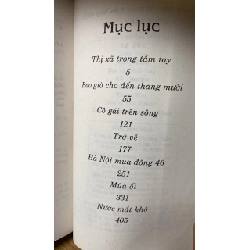 Mục lục
Thị xã trong tầm tay
5
Bao giờ cho đến tháng mười
55
Cô gái trên sông
121
Trở về
177
Hà Nội mùa đông 46
251
Mùa ổi
331
Nước mắt khô
405